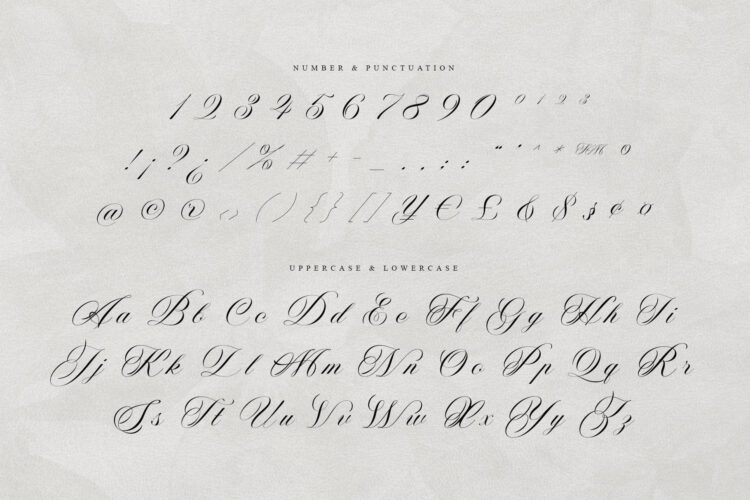 NUMBER & PUNCTUATION
1 2 3 4 5 6 7 8 9 0 ⁰ ¹ ² ³
! ¡ ? ¿ / % # + - _ . , ; : " ' ^ * ™ °
@ © ® ‹ › ( ) { } [ ] ¥ € £ & $ ¢
UPPERCASE & LOWERCASE
Aa Bb Cc Dd Ee Ff Gg Hh Ii
Jj Kk Ll Mm Nn Oo Pp Qq Rr
Ss Tt Uu Vv Ww Xx Yy Zz